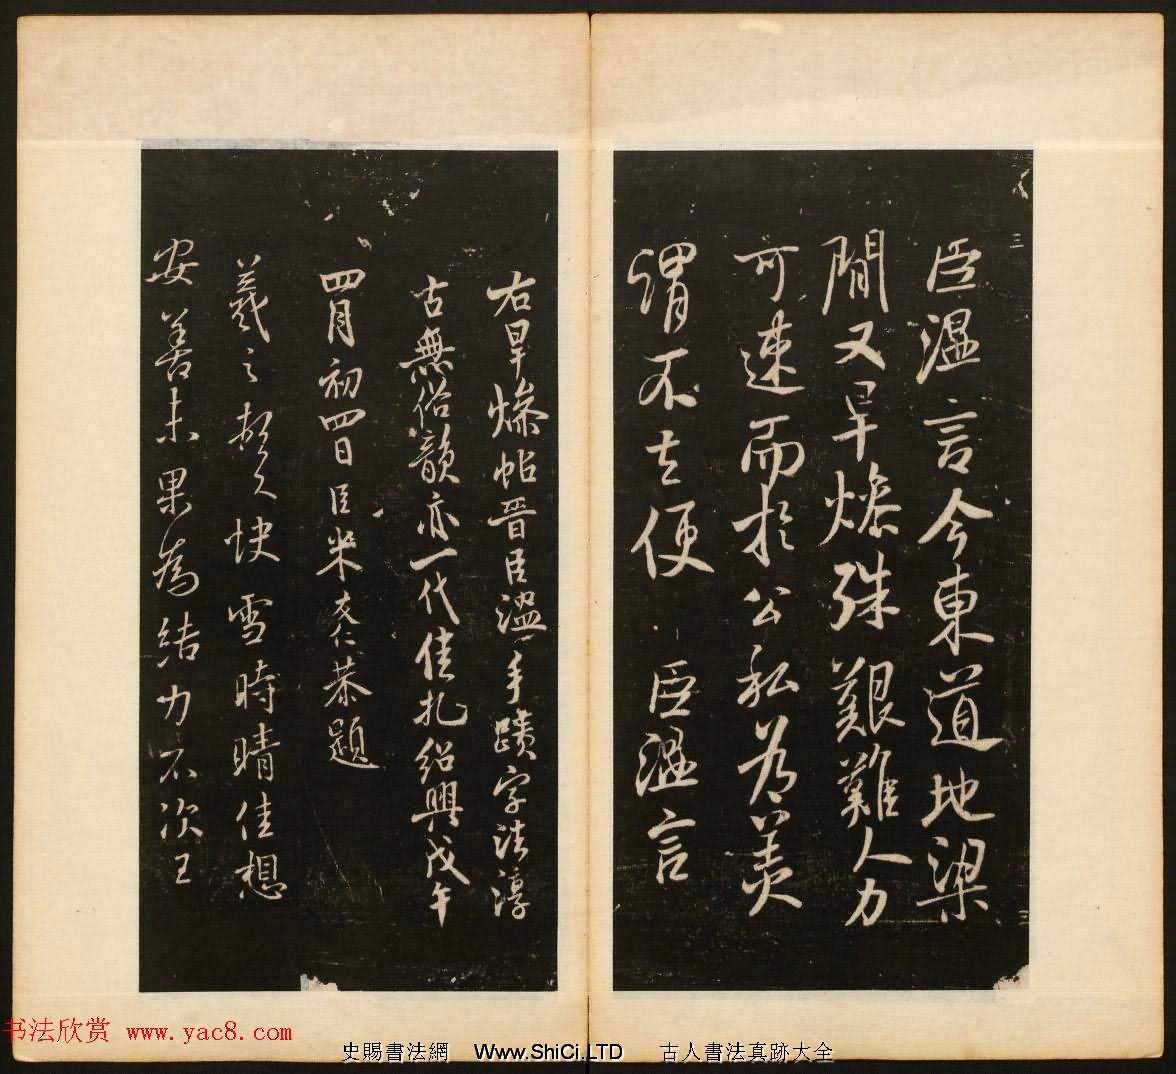 臣温言今東道地梁
閒又旱燥殊艱難人力
可速而於公私為美
謂不去便 臣温言
右旱燥帖晉臣温手蹟字法淳
古無俗韻亦一代佳札紹興戊午
四月初四日臣米友仁恭題
羲之頓首快雪時晴佳想
安善未果為結力不次王
书法欣赏 www.yac8.com
史賜書法網 Www.ShiCi.LTD 古人書法真跡大全